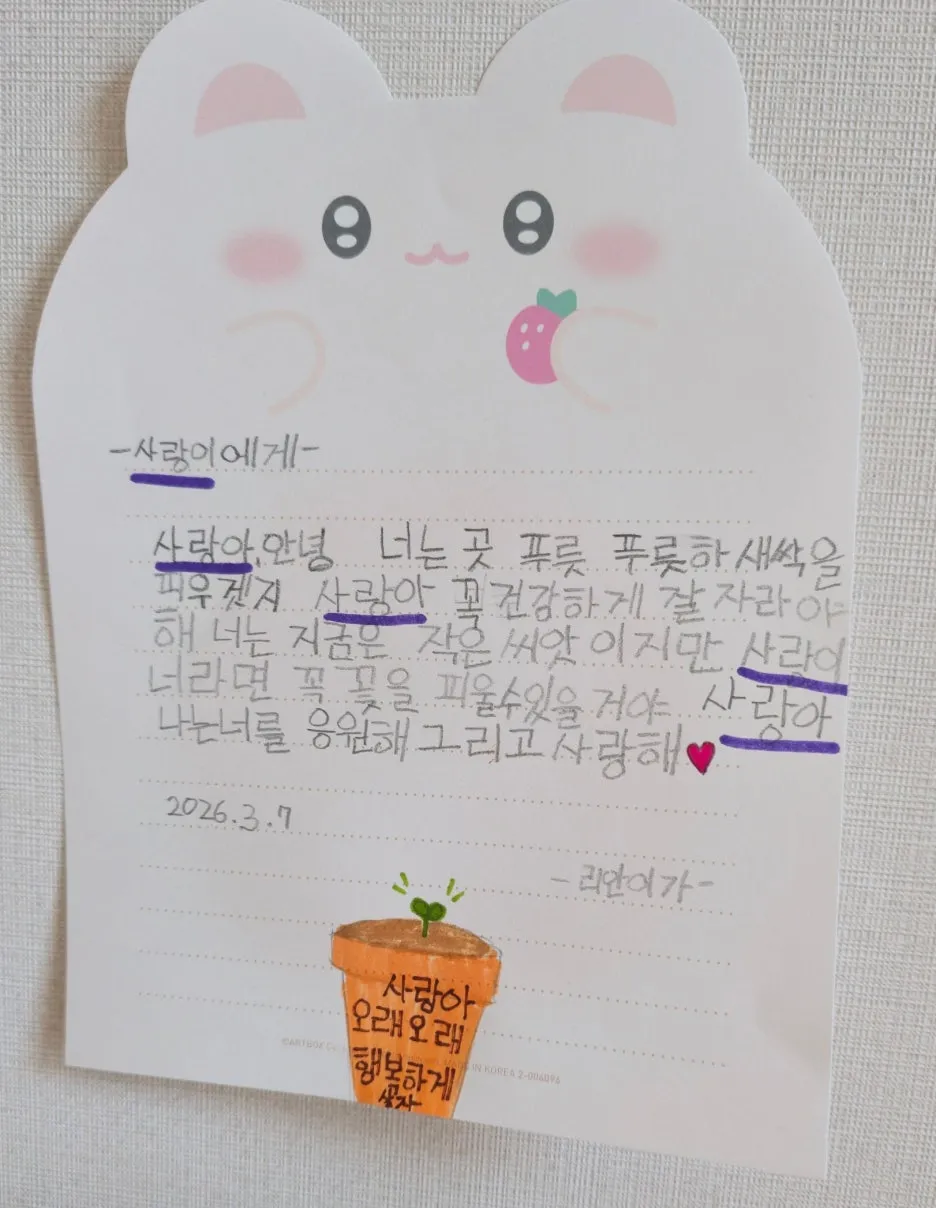 -사랑이에게-
사랑아, 안녕 너는 곳 푸릇 푸릇하 새싹을
피우겟지 사랑아 꼭 건강하게 잘 자라야
해 너는 지금은 작은 씨앗 이지만 사랑이
너라면 꼭 꽃을 피울수있을 거야 사랑아
나는너를 응원해 그리고 사랑해
2026.3.7
-리안이가-
사랑아
오래오래
행복하게
살자
MADE IN KOREA 2-006096